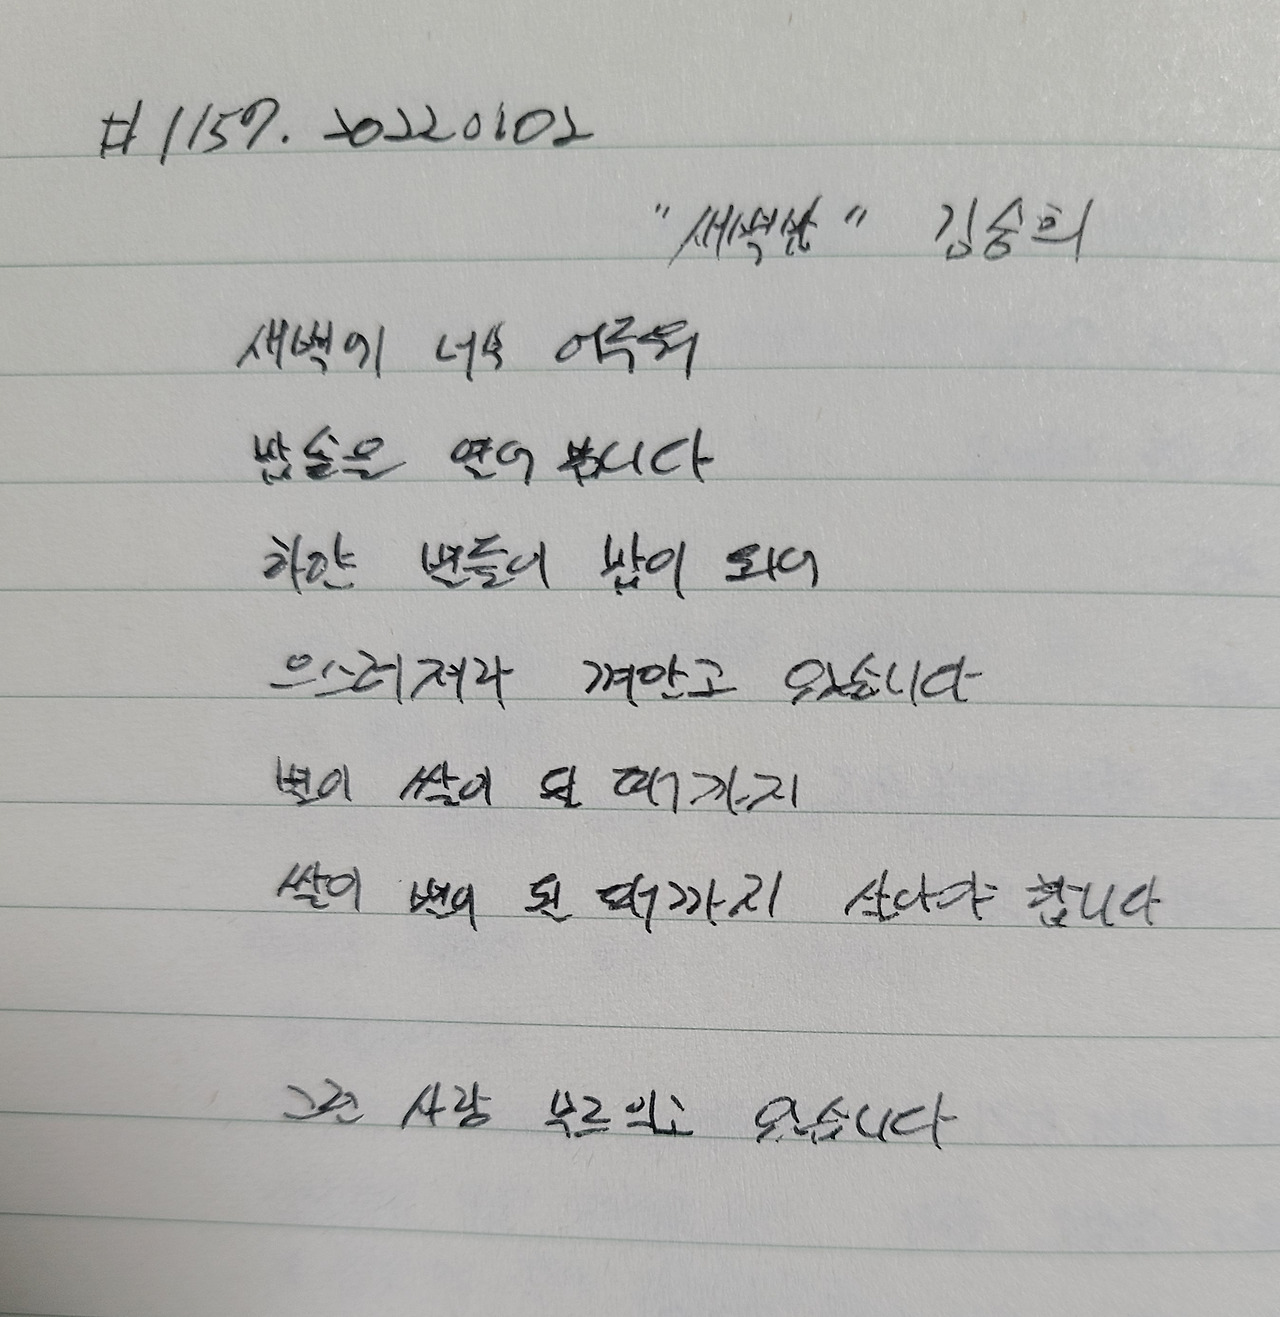 #1157. 20220102
"새벽밥" 김승희
새벽에 너무 어두워
밥솥을 열어 봅니다
하얀 별들이 밥이 되어
으스러져라 껴안고 있습니다
별이 쌀이 될 때까지
쌀이 별이 될 때까지 살아야 합니다
그런 사랑 부르익고 있습니다